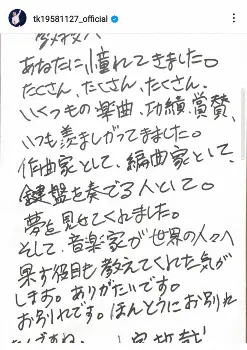 tk19581127_official
あなたに憧れてきました。
たくさん、たくさん、たくさん、
いくつもの楽曲、功績、賞賛、
いつも羨ましがってました。
作曲家として、編曲家として、
鍵盤を奏でる人として。
夢を見せてくれました。
そして、音楽家が世界の人々へ
果す役目も教えてくれた気が
します。ありがたいです。
お別れです。ほんとうにお別れ
なんですね。